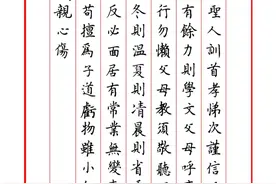 聖人訓首孝悌次謹信
有餘力則學文父母呼
行勿懶父母教須敬聽
冬則溫夏則凊晨則省
反必面居有常業無變
苟擅爲子道虧物雖小
親心傷